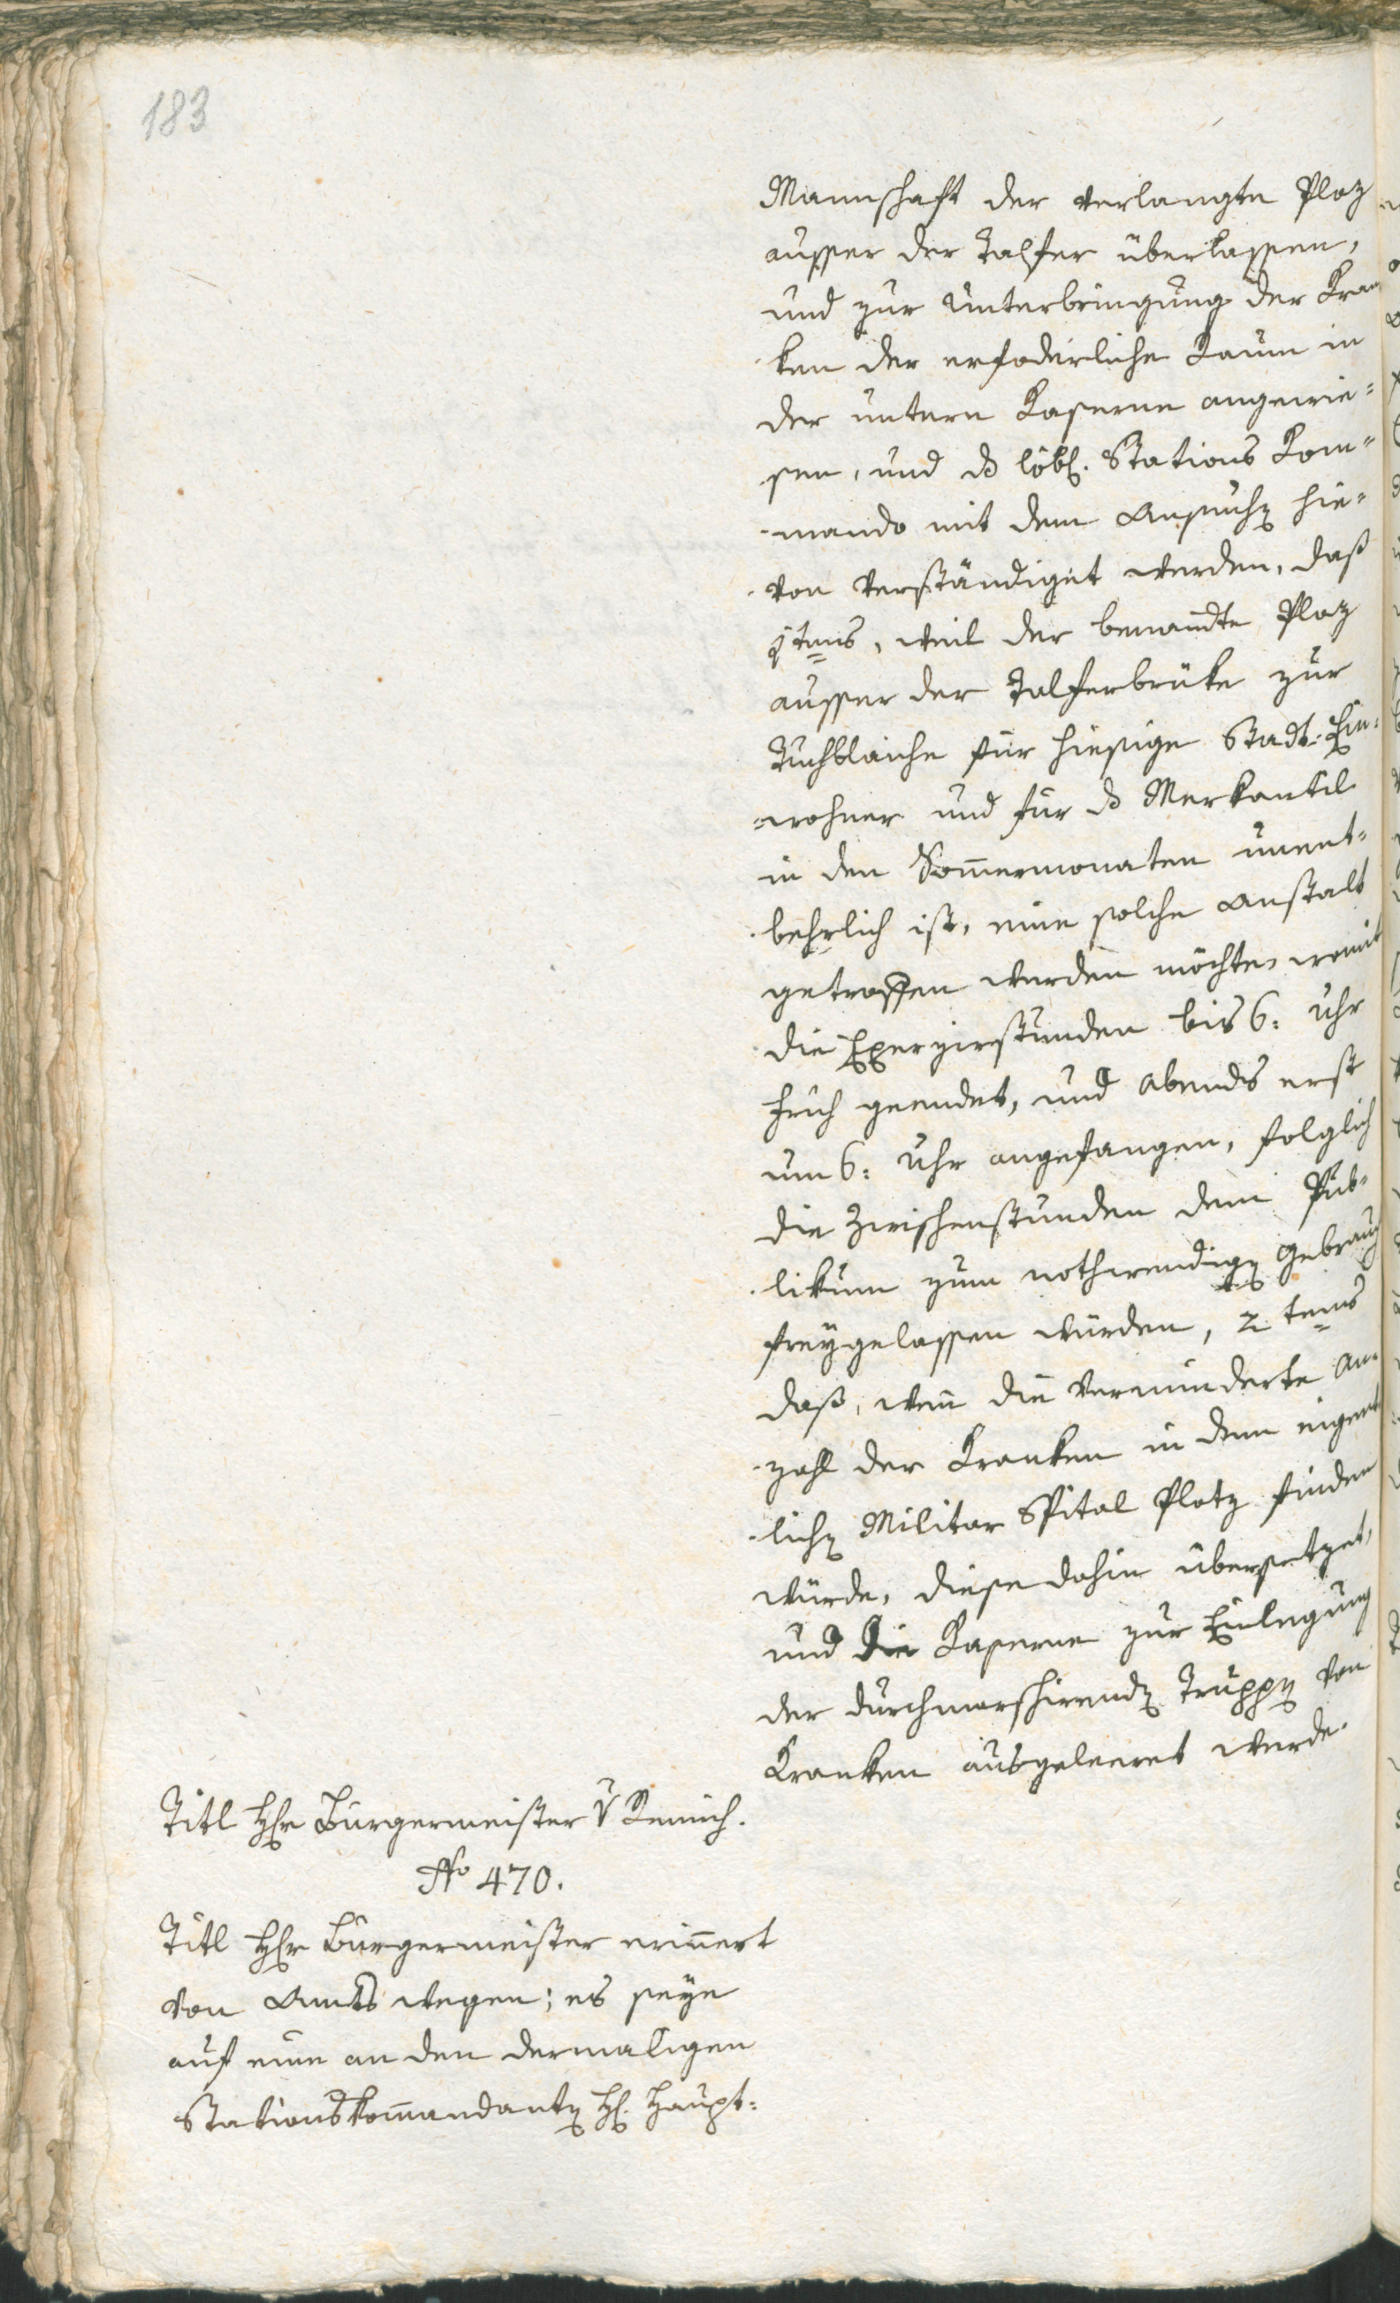 183
Mannschaft der verlangte Plaz
ausser der Talfer überlassen,
und zur Unterbringung der Kran
ken der erfoderliche Raum in
der untern Kaserne angewie=
sen, und das löbl. Stations Kom=
mando mit dem Ansuchen hie=
von verständiget werden, daß
1tens, weil der benan̄dte Plaz
ausser der Talferbrüke zur
Tuchblaiche für hiesige Stadt-Ein=
wohner und für das Merkantil
in den Som̄ermonaten unent=
behrlich ist, eine solche Anstalt
getroffen werden möchte, womit
die Exerzirstunden bis 6: Uhr
früh geendet, und Abends erst
um 6: Uhr angefangen, folglich
die Zwischenstunden dem Pub=
likum zum nothwendigen Gebrauch
freygelassen würden, 2tens
daß, wen̄ die verminderte An=
zahl der Kranken in dem eigent
lichen Militar Spital Platz finden
würde, diese dahin übersetzet,
und die Kaserne zur Einlegung
der durchmarschirenden Truppen von
Kranken ausgeleeret werde.
Titl Hr Bürgermeister v Remich.
No 470.
Titl Hr Bürgermeister erin̄ert
von Amts wegen; es seye
auf eine an den dermaligen
Stationskom̄andanten H. Haupt=